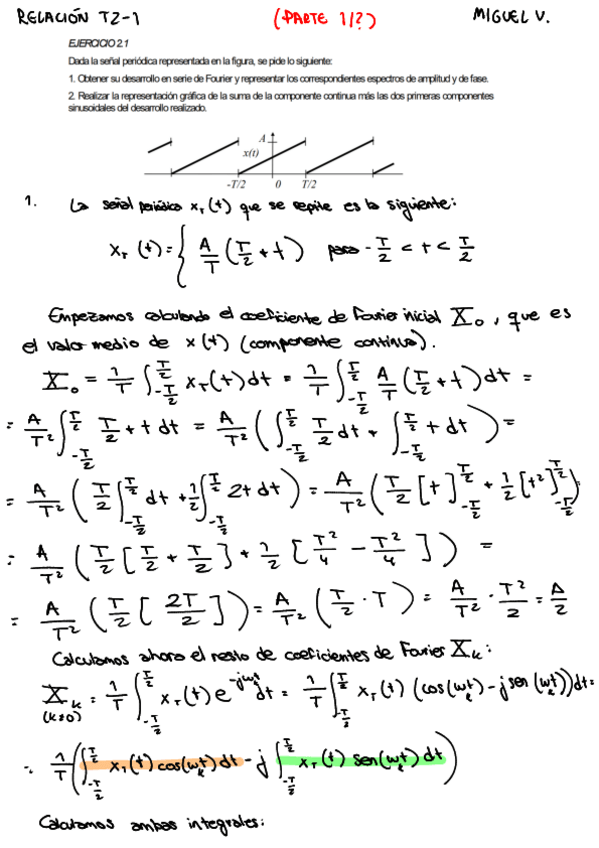 RELACIÓN T2-1 (PARTE 1/?) MIGUEL V.
EJERCICIO 2.1
Dada la señal periódica representada en la figura, se pide lo siguiente:
1. Obtener su desarrollo en serie de Fourier y representar los correspondientes espectros de amplitud y de fase.
2. Realizar la representación gráfica de la suma de la componente continua más las dos primeras componentes
sinusoidales del desarrollo realizado.
A
x(t)
-T/2 0 T/2
1. La señal periódica x_T(t) que se repite es la siguiente:
x_T(t) = { A/T (T/2 + t) para -T/2 < t < T/2
Empezamos calculando el coeficiente de Fourier inicial X_0, que es
el valor medio de x(t) (componente continua).
X_0 = 1/T ∫_{-T/2}^{T/2} x_T(t) dt = 1/T ∫_{-T/2}^{T/2} A/T (T/2 + t) dt =
= A/T² ∫_{-T/2}^{T/2} T/2 + t dt = A/T² ( ∫_{-T/2}^{T/2} T/2 dt + ∫_{-T/2}^{T/2} t dt ) =
= A/T² ( T/2 ∫_{-T/2}^{T/2} dt + 1/2 ∫_{-T/2}^{T/2} 2t dt ) = A/T² ( T/2 [t]_{-T/2}^{T/2} + 1/2 [t²]_{-T/2}^{T/2} )
= A/T² ( T/2 [T/2 + T/2] + 1/2 [T²/4 - T²/4] ) =
= A/T² ( T/2 [2T/2] ) = A/T² ( T/2 · T ) = A/T² · T²/2 = A/2
Calculamos ahora el resto de coeficientes de Fourier X_k:
X_k (k≠0) = 1/T ∫_{-T/2}^{T/2} x_T(t) e^{-jω_k t} dt = 1/T ∫_{-T/2}^{T/2} x_T(t) (cos(ω_k t) - j sen(ω_k t)) dt =
= 1/T ( ∫_{-T/2}^{T/2} x_T(t) cos(ω_k t) dt - j ∫_{-T/2}^{T/2} x_T(t) sen(ω_k t) dt )
Calculamos ambas integrales: